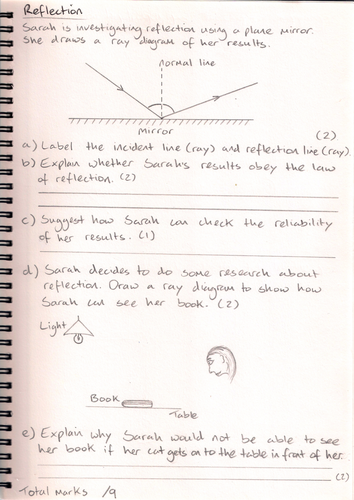 Reflection
Sarah is investigating reflection using a plane mirror.
She draws a ray diagram of her results.
normal line
Mirror
(2)
a) Label the incident line (ray) and reflection line (ray).
b) Explain whether Sarah's results obey the law
of reflection. (2)
c) Suggest how Sarah can check the reliability
of her results. (1)
d) Sarah decides to do some research about
reflection. Draw a ray diagram to show how
Sarah can see her book. (2)
Light
Book
Table
e) Explain why Sarah would not be able to see
her book if her cat gets on to the table in front of her.
(2)
Total Marks /9